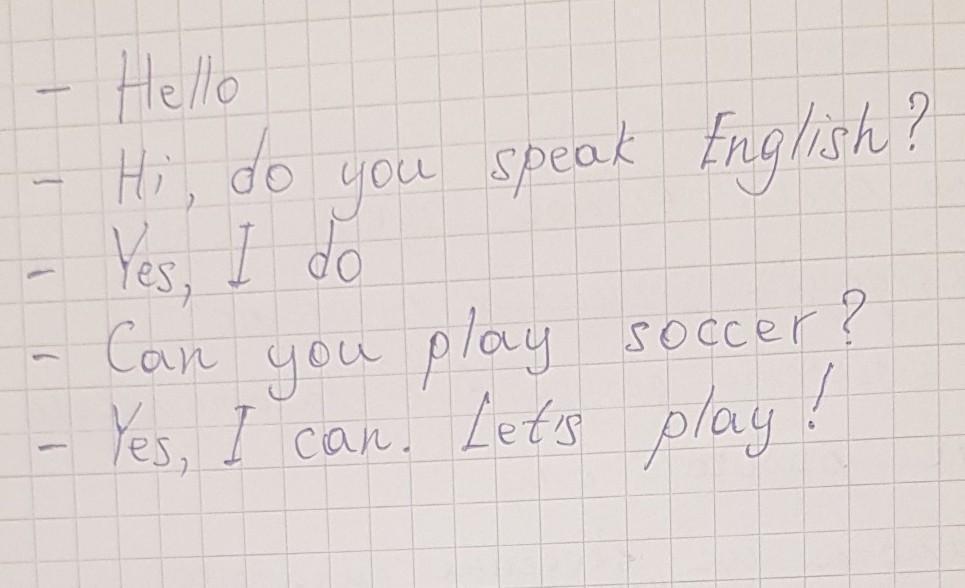 - Hello
- Hi, do you speak English?
- Yes, I do
- Can you play soccer?
- Yes, I can. Let's play!